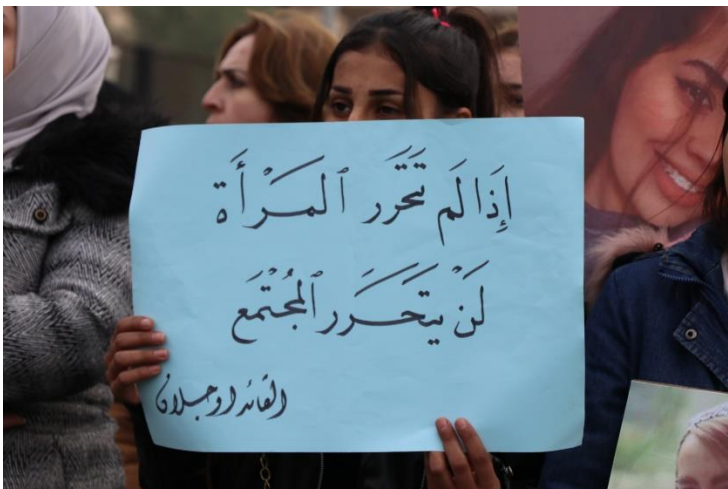 إِذَا لَم تَتَحَّرَر ٱلمَرْأَة
لَنْ يتَحَرَر ٱلمُجْتَمَع
القائد اوجلان